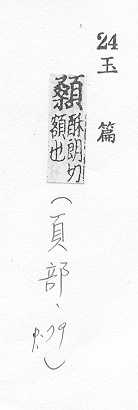 24
玉篇
顙酥朗切
額也
(頁部、
P.79)